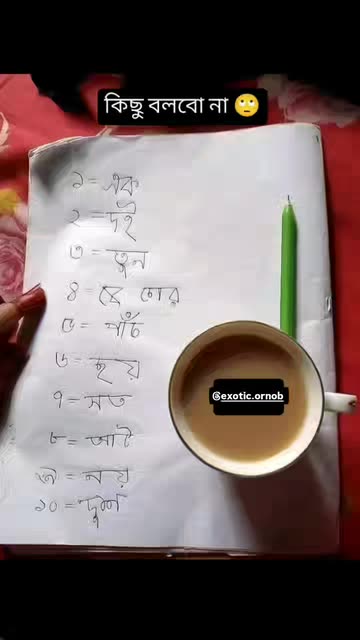 কিছু বলবো না 🙄
১ = এক
২ = দই
৩ = তুন
৪ = চোর
৫ = পাঁচ
৬ = ছয়
৭ = সত
৮ = আট
৯ = নয়
১০ = দুশ
@exotic.ornob